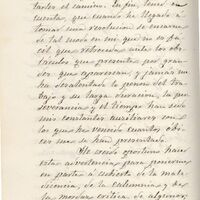 tarles el camino. En fin, tened en
cuenta, que cuando he llegado á
tomar una resolucion se encarna
de tal modo en mi que no es fa-
cil que retroceda ante los obs-
táculos que presente por gran-
des que aparezcan, y jamás me
ha desalentado lo penoso del tra-
bajo y su larga duracion, la per-
severancia y el tiempo han sido
mis constantes auxiliares con
los que he vencido cuantos obs-
táculos se han presentado.
He creido oportuno hacer
esta advertencia para ponerme
en parte á cubierto de la male-
dicencia, de la calumnia y de
la mordaz critica de algunos